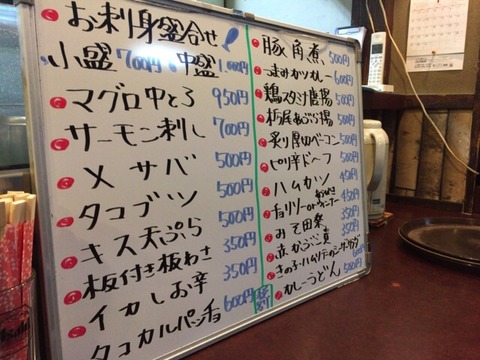 お刺身盛合せ
小盛700円 中盛1,000円
マグロ中とろ 950円
サーモン刺し 700円
〆サバ 500円
タコブツ 500円
キス天ぷら 500円
板付き板わさ 350円
イカしお辛 350円
タコカルパッチョ 600円
豚角煮 500円
煮込みかつカレー 600円
鶏スタミナ唐揚 500円
栃尾あぶら揚 500円
炙り厚切ベーコン 500円
ピリ辛ドーフ 500円
ハムカツ 450円
チョリソー 450円
みそ田楽 350円
赤かぶ 350円
きのことハムのチーズサラダ 600円
カレーうどん 500円